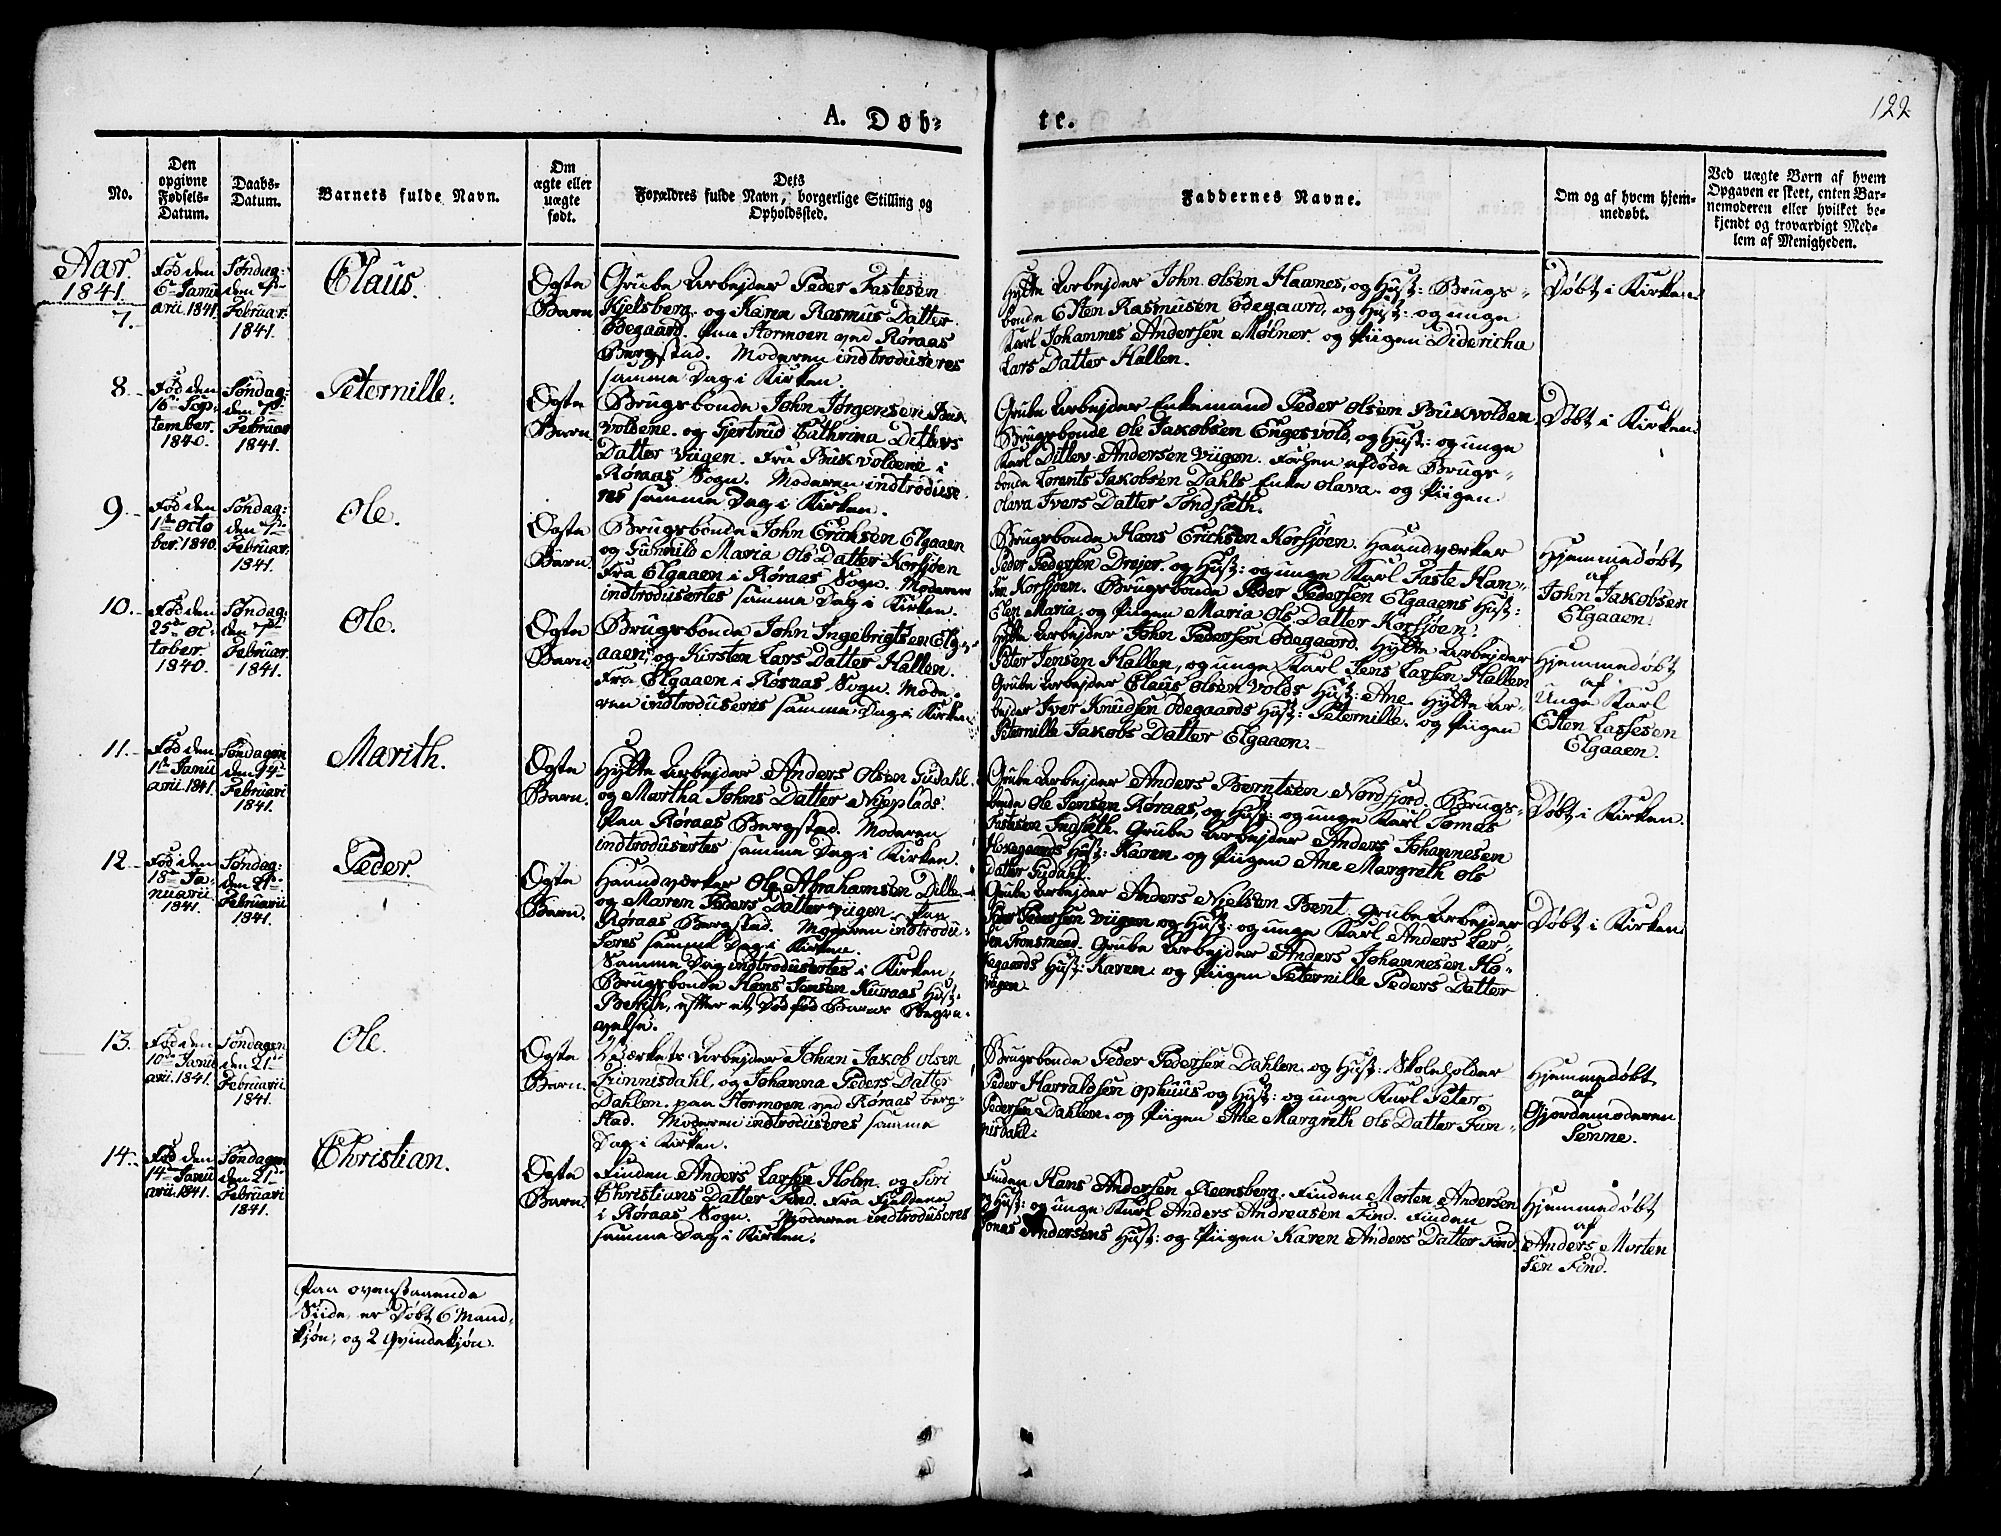 122.
A. Døb- te.
No.
Den opgivne Fødsels-Datum.
Daabs-Datum.
Barnets fulde Navn.
Om ægte eller uægte født.
Dets Forældres fulde Navn, borgerlige Stilling og Opholdssted.
Faddernes Navne.
Om og af hvem hjemmedøbt.
Ved uægte Børn af hvem Opgaven er skeet, enten Barnemoderen eller hvilket bekjendt og troværdigt Medlem af Menigheden.
Aar.
1841.
7.
Fød den
6te Janu
arii 1841.
Søndag:
den 7de
Februar.
1841.
Claus.
Ægte
Barn.
Grube Arbejder Peder Fastesen
Kjelsberg. og Karen Rasmus Datter
Ødegaard. paa Stormoen ved Røraas
Bergstad. Moderen indtroduseres
samme Dag i Kirken.
Hytte Arbejder John Olsen Haanes, og Hust: Brugs-
bonde Esten Rasmusen Ødegaard, og Hust: og unge
Karl Johannes Andersen Mølner. og Piigen Didericha
Lars Datter Hallen.
Døbt i Kirken.
8.
Fød den
16de Sep-
tember.
1840.
Søndag:
den 7de
Februar
1841.
Peternille.
Ægte
Barn.
Brugsbonde John Jørgensen Buk
voldene. og Gjertrud Cathrina Ditlevs
Datter Viigen. Fra Bukvoldene i
Røraas Sogn. Moderen indtroduse-
res samme Dag i Kirken.
Grube Arbejder Enkemand Peder Olsen Bukvolden.
Brugsbonde Ole Jakobsen Engesvold, og Hust: og unge
Karl Ditlev Andersen Viigen. Forhen afdøde Brugs-
bonde Lorents Jakobsen Dahls Enke Olava. og Piigen
Olava Ivers Datter Sondsæth.
Døbt i Kirken.
9.
Fød den
1te Octo
ber. 1840.
Søndag:
den 7de
Februar.
1841.
Ole.
Ægte
Barn.
Brugsbonde John Erichsen Elgaaen
og Gunnild Maria Ols Datter Korsjøen
Fra Elgaaen i Røraas Sogn. Moderen
indtrodusertes samme Dag i Kirken.
Brugsbonde Hans Erichsen Korsjøen. Haandværker
Peder Pedersen Drejer. og Hust: og unge Karl Faste Han-
sen Korsjøen. Brugsbonde Peder Pedersen Elgaaens Hust:
Elen Maria. og Piigen Maria Ols Datter Korsjøen.
Hjemmedøbt
af
John Jakobsen
Elgaaen.
10.
Fød den
25de Oc-
tober.
1840.
Søndag:
den 7de
Februar.
1841.
Ole.
Ægte
Barn.
Brugsbonde John Ingebrigtsen Elg-
aaen, og Kirsten Lars Datter Hallen.
Fra Elgaaen i Røraas Sogn. Mode-
ren indtroduseres samme Dag i Kirken
Hytte Arbejder John Pedersen Ødegaard. Hytte Arbejder
Peter Jensen Hallen, og unge Karl Jens Larsen Hallen
Grube Arbejder Claus Olsen Volds Hust: Ane. Hytte Ar-
bejder Iver Knudsen Ødegaards Hust: Peternille. og Piigen
Peternille Jakobs Datter Elgaaen.
Hjemmedøbt
af
Unge Karl
Esten Lassesen
Elgaaen.
11.
Fød den
1te Janu
arii. 1841.
Søndagen
den 14de
Februarii
1841.
Marith.
Ægte
Barn.
Hytte Arbejder Anders Olsen Gudahl.
og Martha Johns Datter Nyplads.
Paa Røraas Bergstad. Moderen
indtrodusertes samme Dag i Kirken.
Grube Arbejder Anders Berntsen Nordfjord. Brugs-
bonde Ole Jensen Røraas, og Hust: og unge Karl Tomas
Fastesen Indsæth. Grube Arbejder Anders Johannesen
Hosegaards Hust: Karen. og Piigen Ane Margreth Ols
Datter Gudahl.
Døbt i Kirken.
12.
Fød den
18de Ja-
nuarii
1841.
Søndag:
den 21de
Februarii
1841.
Peder.
Ægte
Barn.
Haandværker Ole Abrahamsen Dille-
og Maren Peders Datter Viigen. Paa
Røraas Bergstad. Moderen indtrodu-
seres samme Dag i Kirken.
Samme Dag indtrodusertes i Kirken,
Brugsbonde Hans Jensen Kuraas Hust:
Berith, efter et Død fød Barns Begra-
velse.
Grube Arbejder Anders Nielsen Bent. Grube Arbejder
Peder Pedersen Viigen og Hust: og unge Karl Anders Lar-
sen Tronsmoed. Grube Arbejder Anders Johannesen Ho-
segaards Hust: Karen. og Piigen Peternille Peders Datter
Viigen.
Døbt i Kirken
13.
Fød den
10de Janu
arii. 1841.
Søndagen
den 21de
Februarii.
1841.
Ole.
Ægte
Barn.
Værkets Arbejder Johan Jakob Olsen
Funnisdahl, og Johanna Peders Datter
Dahlen. paa Stormoen ved Røraas berg-
stad. Moderen indtroduseres samme
Dag i Kirken.
Brugsbonde Peder Pedersen Dahlen. og Hust: Skoleholder
Peder Harraldsen Ophuus og Hust: og unge Karl Peter
Pedersen Dahlen. og Piigen Ane Margreth Ols Datter Fun-
nisdahl.
Hjemmedøbt
af
Gjordemoderen
Sønne.
14.
Fød den
14de Janu
arii. 1841.
Søndagen
den 21de
Februarii
1841.
Christian.
Ægte
Barn.
Finden Anders Larsen Holm. og Siri
Christians Datter Find. Fra Fjeldene
i Røraas Sogn. Moderen indtroduseres
samme Dag i Kirken.
Finden Hans Andersen Reensberg. Finden Morten Andersen
og Hust: og unge Karl Anders Andreasen Find. Finden
Jonas Andersens Hust: og Piigen Karen Anders Datter Find.
Hjemmedøbt
af
Anders Morten
sen Find.
Paa ovenstaaende
Siide, er Døbt 6 Mand-
kjøn, og 2 Qvindekjøn.